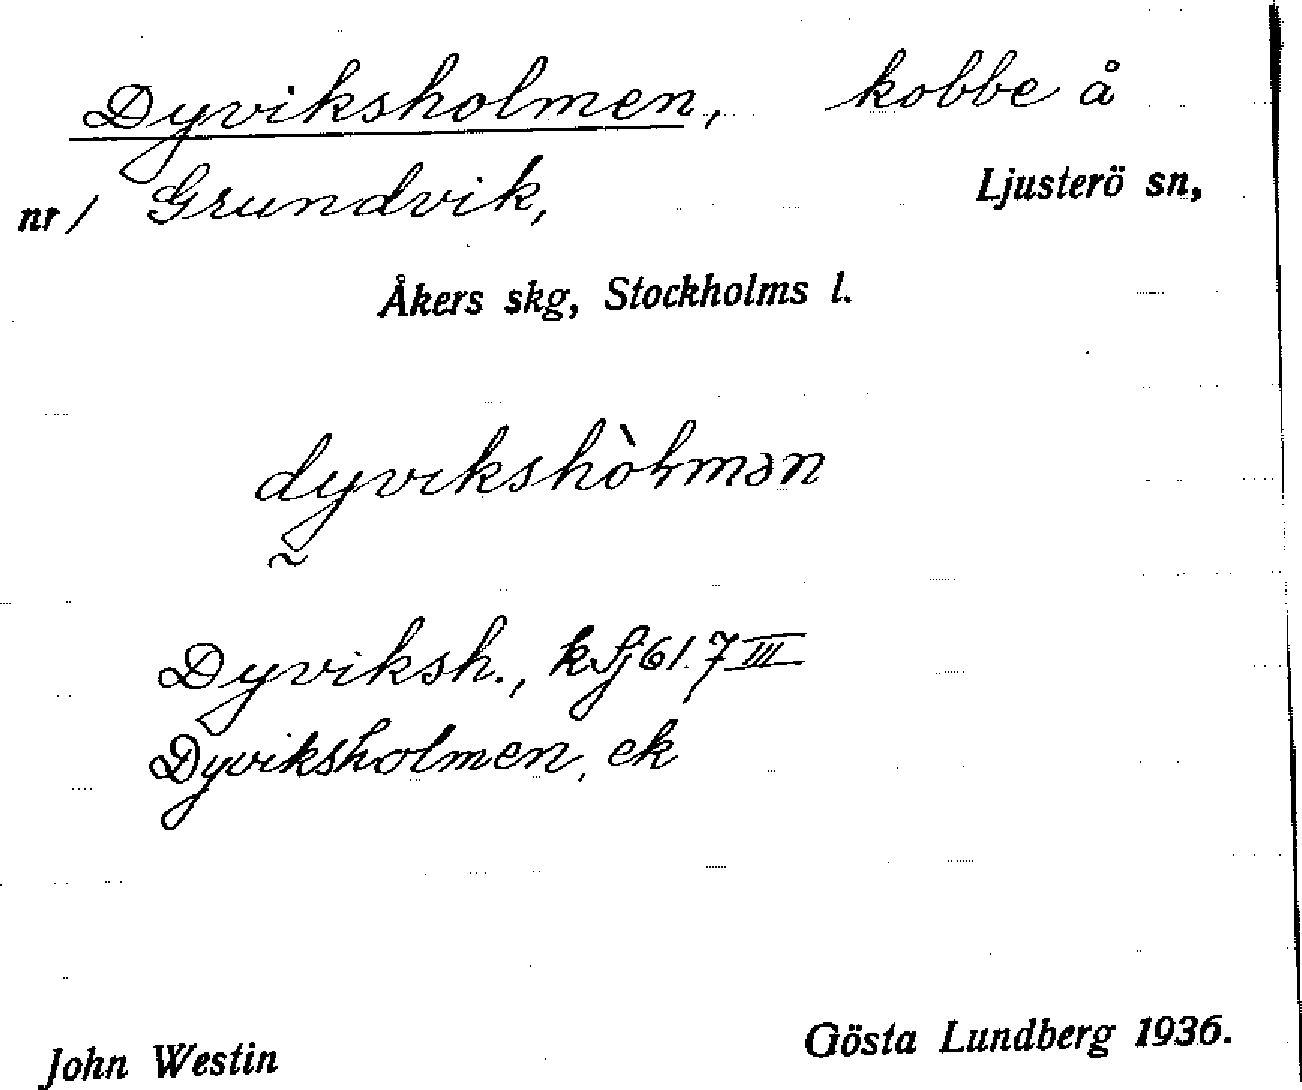 Dyviksholmen, kobbe å
nr 1 Grundvik, Ljusterö sn,
Åkers skg, Stockholms l.
dyvikshòlmən
Dyviksh., k Sj 61 7 III
Dyviksholmen, ek
John Westin Gösta Lundberg 1936.